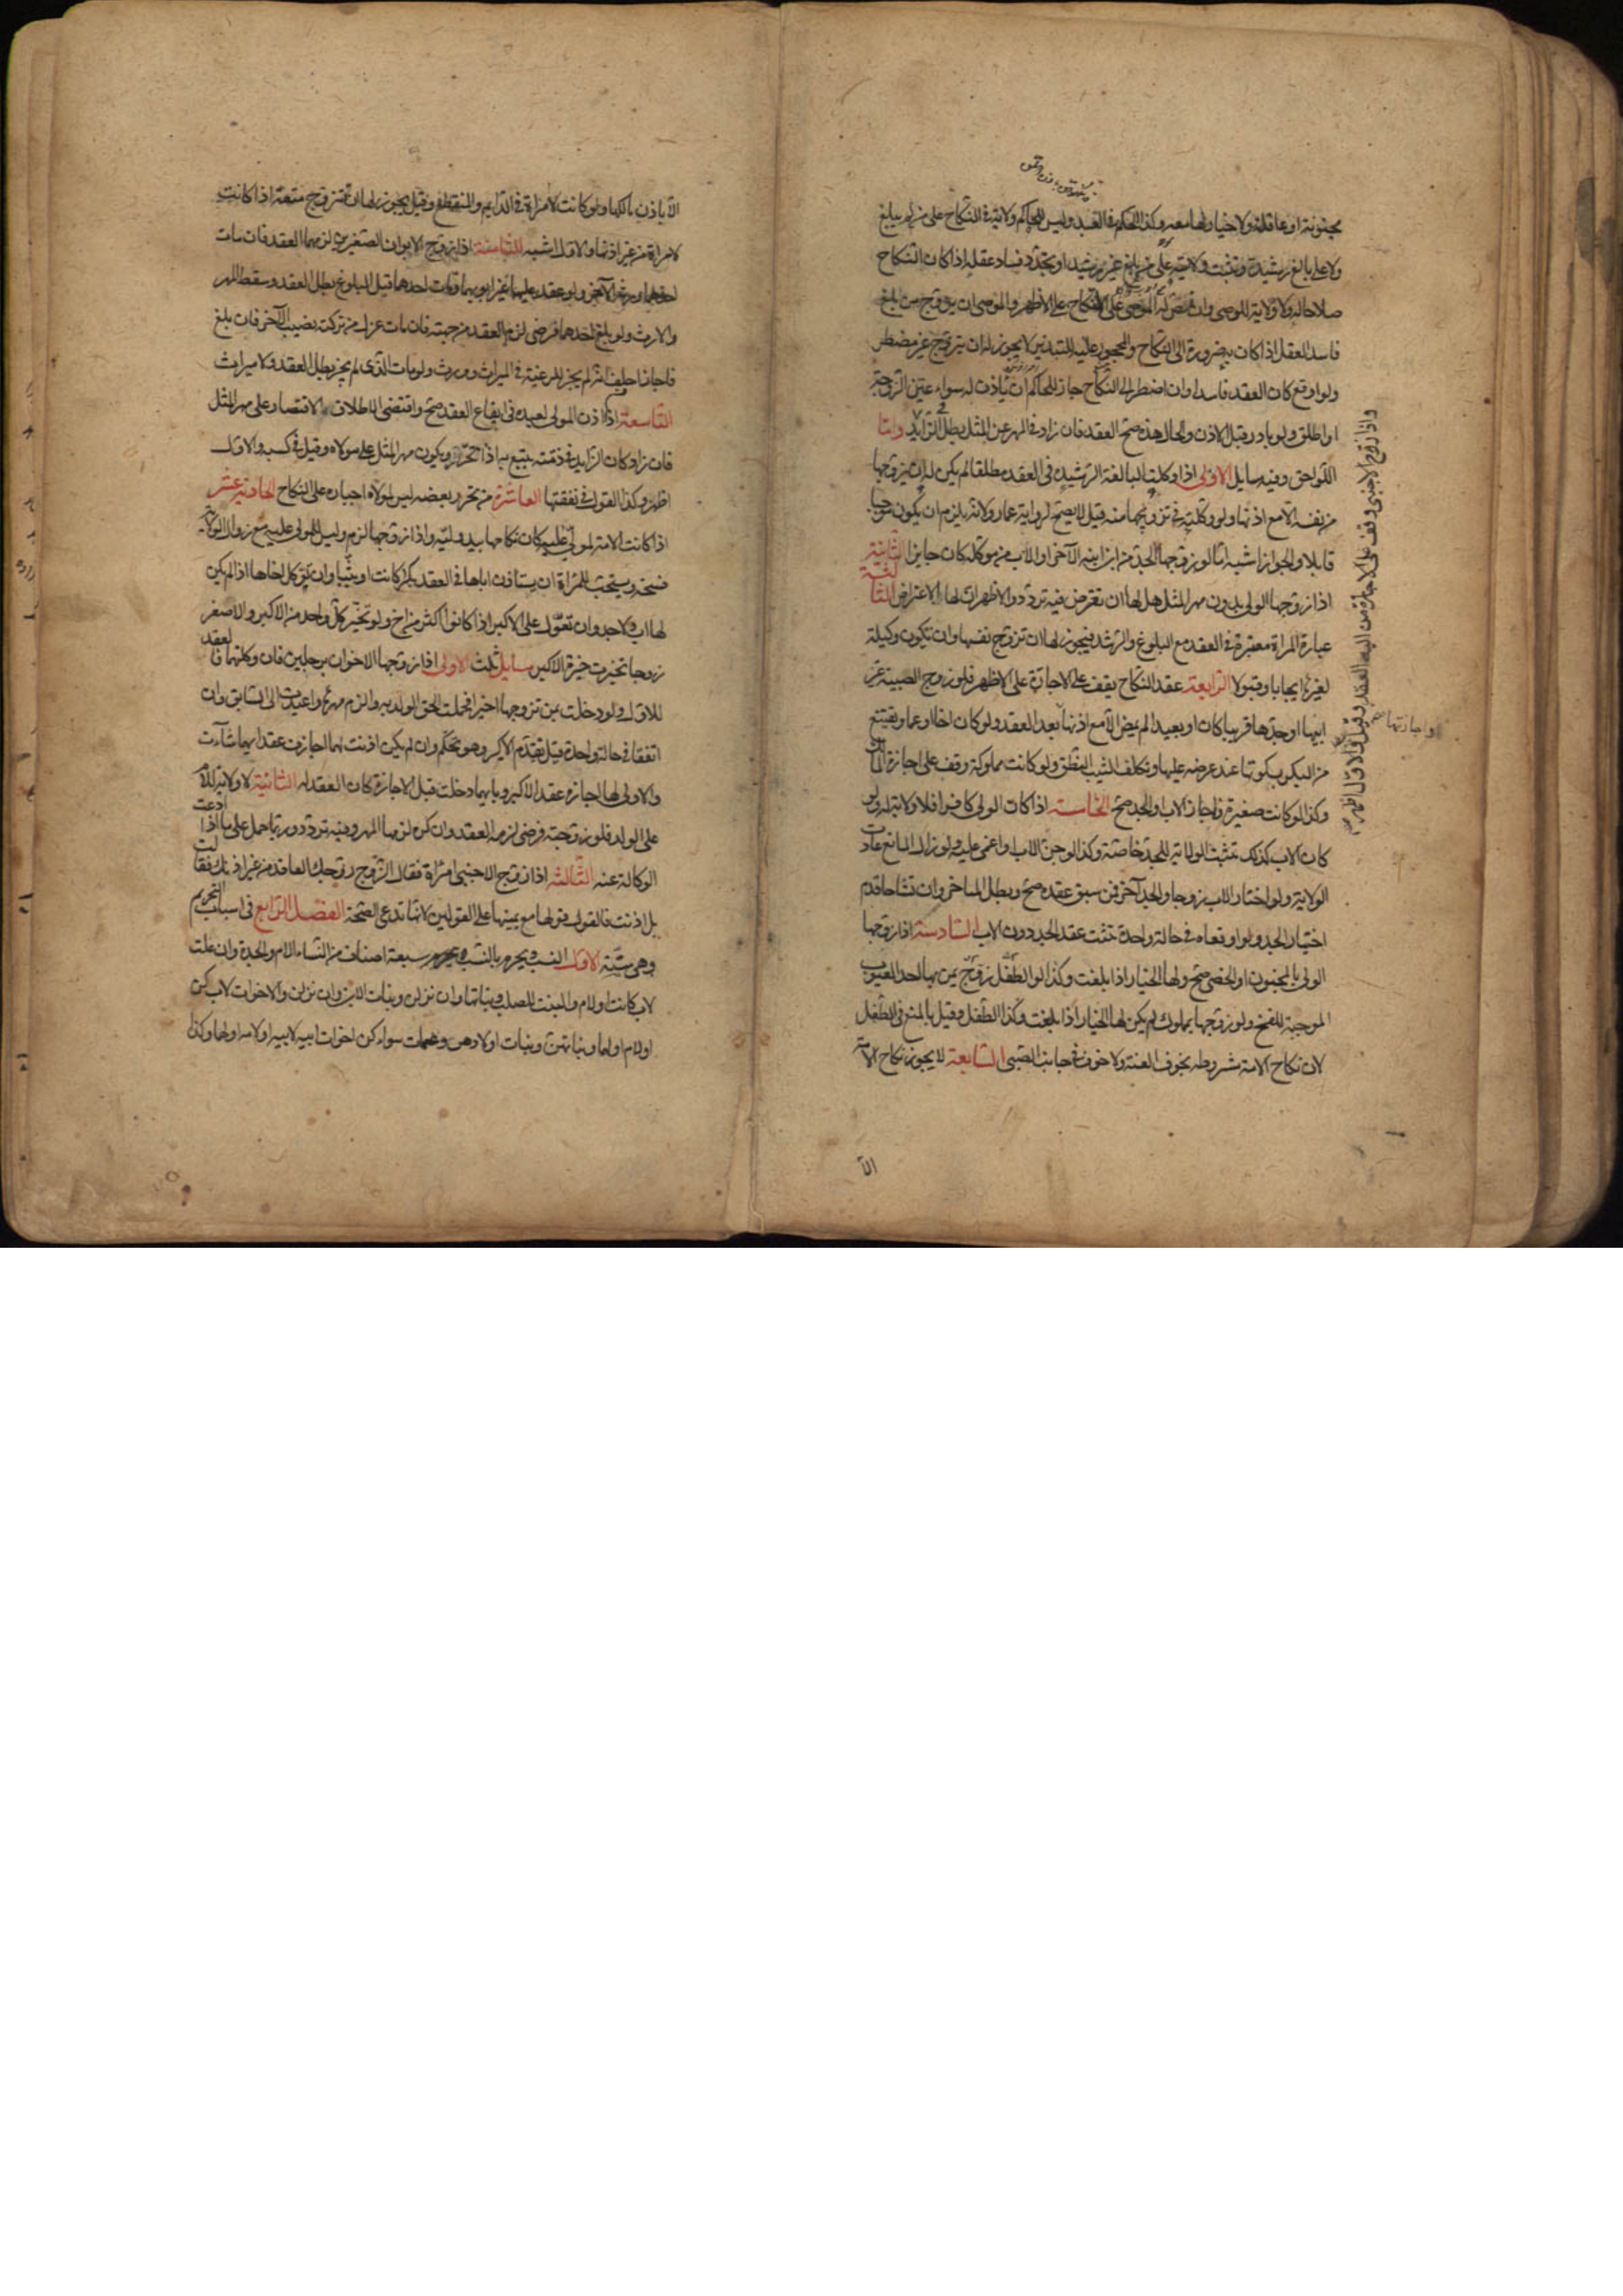 مجنونة او عاقلة ولا خيار لها معه وكذا الحكم في العبد وليس للحاكم ولاية في النكاح على من لم يبلغ
ولا على بالغ رشيد وتثبت ولايته على من بلغ غير رشيد او تجدد فساد عقله اذا كان النكاح
صلاحا له ولا ولاية للوصى وان نص له الموصى على النكاح على الاظهر وللوصى ان يزوج من بلغ
فاسد العقل اذا كان به ضرورة الى النكاح والمحجور عليه للتبذير لا يجوز له ان يتزوج غير مضطر
ولو اوقع كان العقد فاسدا وان اضطر الى النكاح جاز للحاكم ان ياذن له سواء عين الزوجة
او اطلق ولو بادر قبل الاذن والحال هذه صح العقد فان زاد في المهر عن المثل بطل في الزايد واما
اللواحق وفيه مسايل الاولى اذا وكلت البالغة الرشيدة في العقد مطلقا لم يكن له ان يزوجها
من نفسه الا مع اذنها ولو وكلته في تزويجها منه قيل لا يصح لرواية عمار ولانه يلزم ان يكون موجبا
قابلا والجواز اشبه اما لو زوجها الجد من ابن ابنه الآخر او الاب من موكله كان جايزا الثانية
اذا زوجها الولى بدون مهر المثل هل لها ان تعترض فيه تردد والاظهر ان لها الاعتراض الثالثة
عبارة المراة معتبرة في العقد مع البلوغ والرشد فيجوز لها ان تزوج نفسها وان تكون وكيلة
لغيرها ايجابا وقبولا الرابعة عقد النكاح يقف على الاجازة على الاظهر فلو زوج الصبية غير
ابيها او جدها قريبا كان او بعيدا لم يمض الا مع اذنها بعد العقد ولو كان اخا او عما ويقتنع
من البكر بسكوتها عند عرضه عليها وتكلف الثيب النطق ولو كانت مملوكة وقف على اجازة المالك
وكذا لو كانت صغيرة فاجاز الاب او الجد صح الخامسة اذا كان الولى كافرا فلا ولاية له ولو
كان الاب كذلك تثبت الولاية للجد خاصة وكذا لو جن الاب او اغمى عليه ولو زال المانع عادت
الولاية ولو اختار الاب زوجا والجد آخر فمن سبق عقده صح وبطل المتاخر وان تشاحا قدم
اختيار الجد ولو اوقعاه في حالة واحدة ثبت عقد الجد دون الاب السادسة اذا زوجها
الولى بالمجنون او الخصى صح ولها الخيار اذا بلغت وكذا لو الطفل زوج بمن بها احد العيوب
الموجبة للفسخ ولو زوجها بمملوك لم يكن لها الخيار اذا بلغت وكذا الطفل وقيل بالمنع في الطفل
لان نكاح الامة مشروط بخوف العنت ولا خوف في جانب الصبى السابعة لا يجوز نكاح الامة
الا
واذا زوج الاجنبى وقف على الاجازة من اليه العقد
الا باذن مالكها ولو كانت لامراة في الدايم والمنقطع وقيل يجوز لها ان تتزوج متعة اذا كانت
لامراة من غير اذنها والاول اشبه الثامنة اذا زوج الابوان الصغيرين لزمهما العقد فان مات
احدهما ورثه الآخر ولو عقد عليهما غير ابويهما ومات احدهما قبل البلوغ بطل العقد وسقط المهر
والارث ولو بلغ احدهما فرضى لزم العقد من جهته فان مات عزل من تركته نصيب الآخر فان بلغ
فاجاز احلف انه لم يجز للرغبة في الميراث وورث ولو مات الذى لم يجز بطل العقد ولا ميراث
التاسعة اذا اذن المولى لعبده في ايقاع العقد صح واقتضى الاطلاق الاقتصار على مهر المثل
فان زاد كان الزايد في ذمته يتبع به اذا تحرر ويكون مهر المثل على مولاه وقيل في كسبه والاول
اظهر وكذا القول في نفقتها العاشرة من تحرر بعضه ليس لمولاه اجباره على النكاح الحادية عشر
اذا كانت الامة لمولى عليه كان نكاحها بيد وليه واذا زوجها لزم وليس للمولى عليه مع زوال الولاية
فسخه ويستحب للمراة ان تستاذن اباها في العقد بكرا كانت او ثيبا وان توكل اخاها اذا لم يكن
لها اب ولا جد وان تعول على الاكبر اذا كانوا اكثر من اخ ولو تخير كل واحد من الاكبر والاصغر
زوجا تخيرت خيرة الاكبر مسايل ثلث الاولى اذا زوجها الاخوان برجلين فان وكلتهما فالعقد
للاول ولو دخلت بمن تزوجها اخيرا فحملت الحق الولد به والزم مهرها واعيدت الى السابق وان
اتفقا في حالة واحدة قيل يقدم الاكبر وهو تحكم وان لم يكن اذنت لهما اجازت عقد ايهما شاءت
والاولى لها اجازة عقد الاكبر وبايهما دخلت قبل الاجازة كان العقد له الثانية لا ولاية للام
على الولد فلو زوجته فرضى لزمه العقد وان كره لزمها المهر وفيه تردد وربما حمل على ما اذا ادعت
الوكالة عنه الثالثة اذا زوج الاجنبى امراة فقال الزوج زوجك العاقد من غير اذنك فقالت
بل اذنت فالقول قولها مع يمينها على القولين لانها تدعى الصحة الفصل الرابع في اسباب التحريم
وهى ستة الاول النسب ويحرم بالنسب سبعة اصناف من النساء الام والجدة وان علت
لاب كانت او لام والبنت للصلب وبناتها وان نزلن وبنات الابن وان نزلن والاخوات لاب كن
او لام او لهما وبناتهن وبنات اولادهن والعمات سواء كن اخوات ابيه لابيه او لامه او لهما وكذا